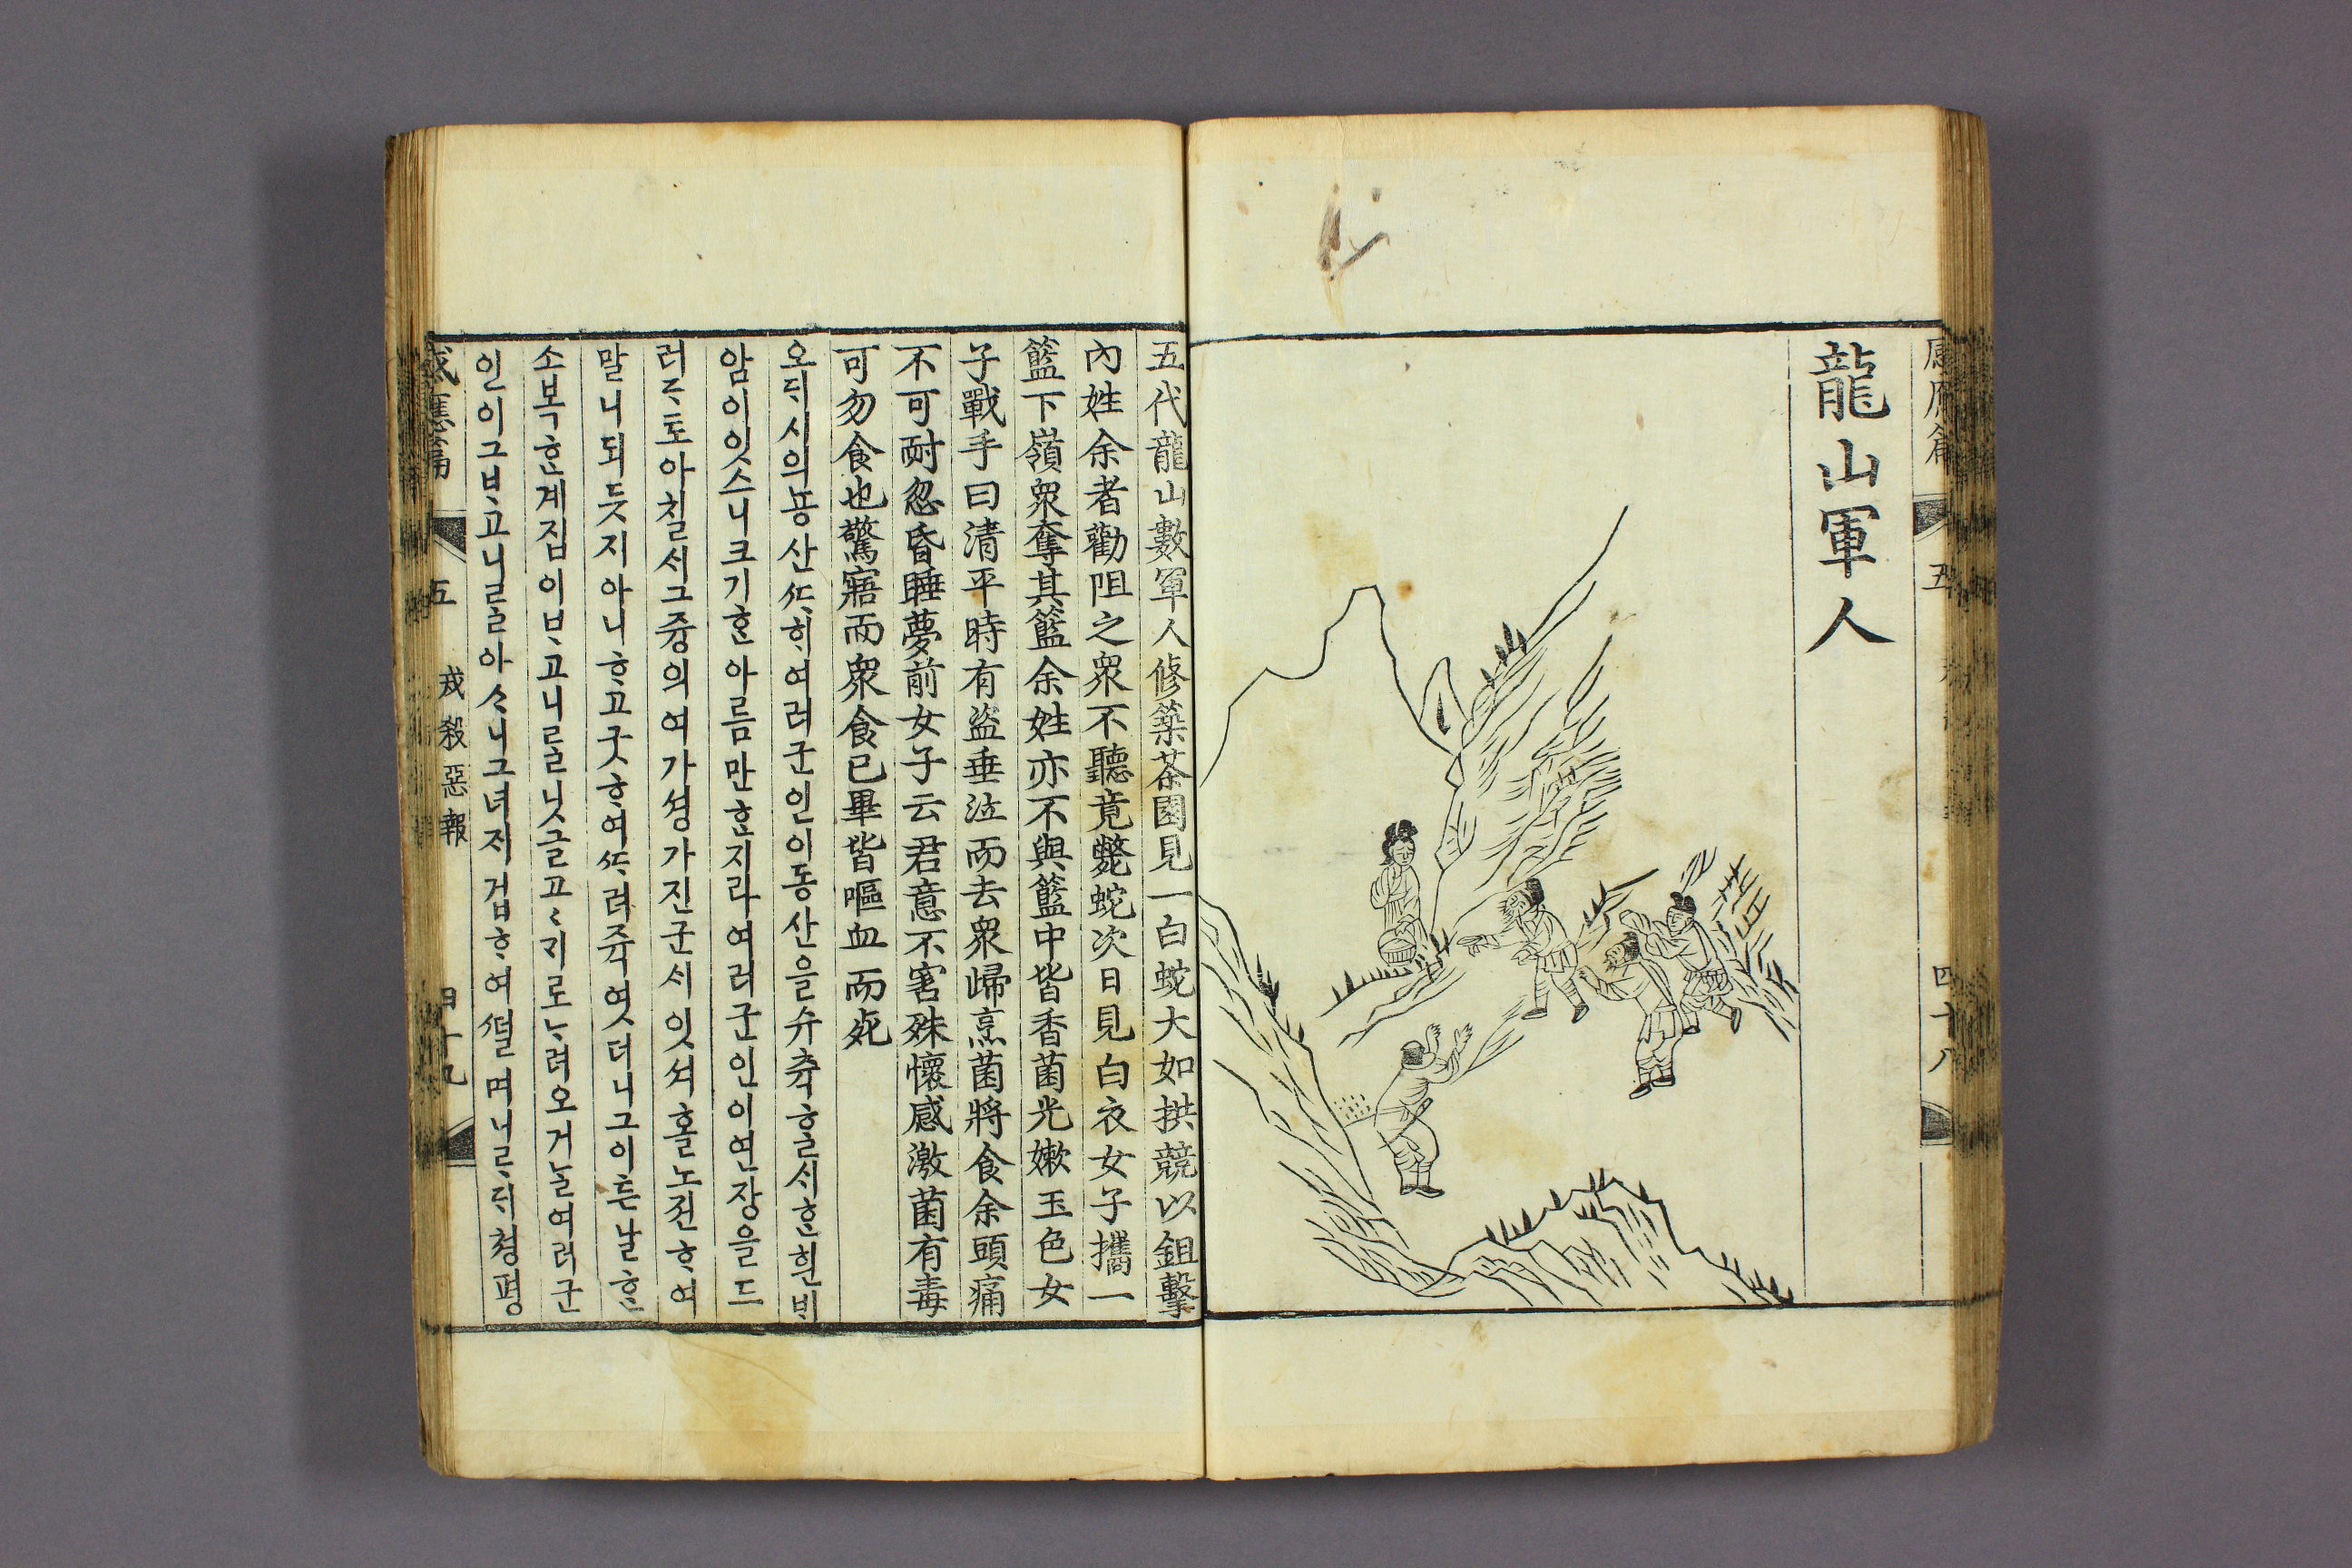 龍山軍人
五代龍山數軍人修築茶園見一白蛇大如拱競以鉏擊
內姓余者勸阻之衆不聽竟斃蛇次日見白衣女子攜一
籃下嶺衆奪其籃余姓亦不與籃中皆香菌光嫰玉色女
子戰手曰清平時有盜垂泣而去衆歸烹菌將食余頭痛
不可耐忽昏睡夢前女子云君意不害殊懷感激菌有毒
可勿食也驚寤而衆食已畢皆嘔血而死
오ᄃᆡ시의뇽산ᄯᅡᄒᆡ여러군인이동산을슈츅ᄒᆞᆯᄉᆡᄒᆞᆫ흰ᄇᆡ
암이잇스니크기ᄒᆞᆫ아름만ᄒᆞᆫ지라여러군인이연장을드
러ᄌᆞ토아칠ᄉᆡ그즁의여가셩가진군ᄉᆡ잇셔홀노젼ᄒᆞ여
말니되듯지아니ᄒᆞ고굿ᄒᆞ여ᄯᆞ려쥭엿더니그이튼날ᄒᆞᆫ
소복ᄒᆞᆫ계집이ᄇᆞ고니ᄅᆞᆯ닛글고고ᄀᆡ로ᄂᆞ려오거ᄂᆞᆯ여러군
인이그ᄇᆞ고니ᄅᆞᆯ아ᄉᆞ니그녀ᄌᆡ겁ᄒᆞ여ᄯᅥᆯ며니ᄅᆞᄃᆡ쳥평
感應篇 五 戒殺惡報 四十九
五 四十八